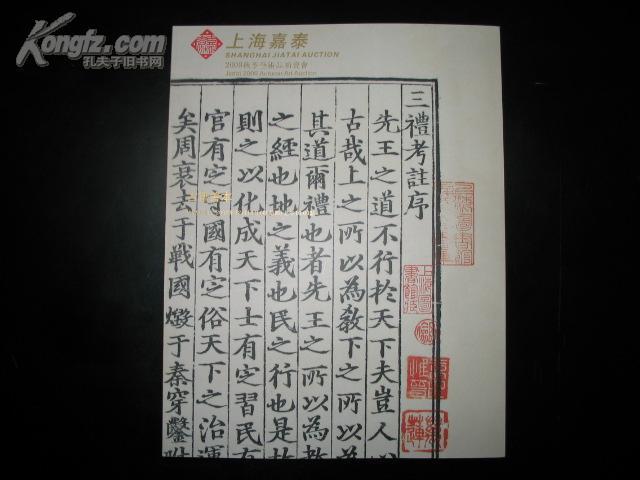 Kongfz.com
孔夫子旧书网
上海嘉泰
SHANGHAI JIATAI AUCTION
2009秋季藝術品拍賣會
Jiatai 2009 Autumn Art Auction
古籍善本
三禮考註序
先王之道不行於天下夫豈人
古哉上之所以為教下之所以
其道爾禮也者先王之所以為教
之經也地之義也民之行也是故
則之以化成天下士有定習民有
官有定守國有定俗天下之治運
矣周衰去于戰國燬于秦穿鑿附
上海圖書館藏